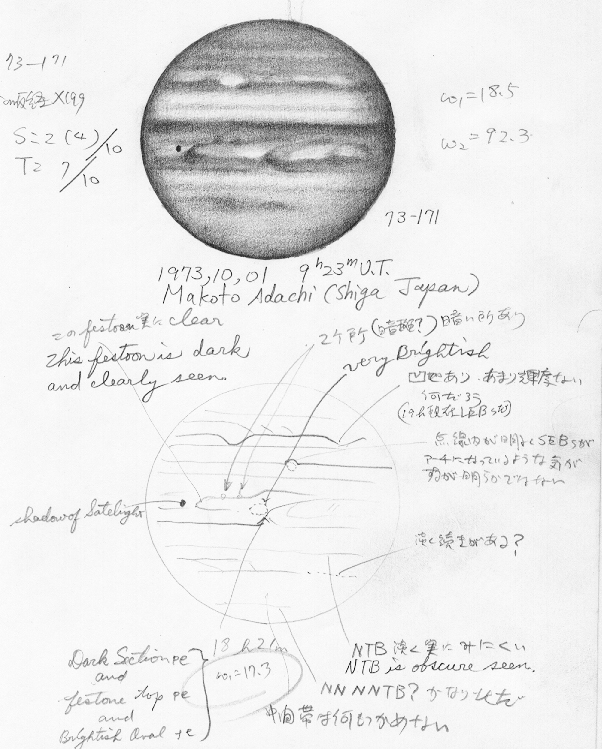 73-171
X199
S=2 (4)/10
T= 7/10
ω1=18.5
ω2=92.3
73-171
1973,10,01 9h23m U.T.
Makoto Adachi (Shiga Japan)
この festoon 実に clear
This festoon is dark
and clearly seen.
2ヶ所 (暗斑?) 暗い所あり
very Brightish
凹地あり・あまり輝度ない
何だろう
点線内が明るくSEBsが
アーチになっているような気が
明らかでない
shadow of Satelight
淡く続きがある?
18h21m
ω1=17.3
Dark Section pe
and
festone top pe
and
Brightish Oval +e
NTB 淡く実にみにくい
NTB is obscure seen.
NNNNTB? かなり
中間帯は何もつかめない